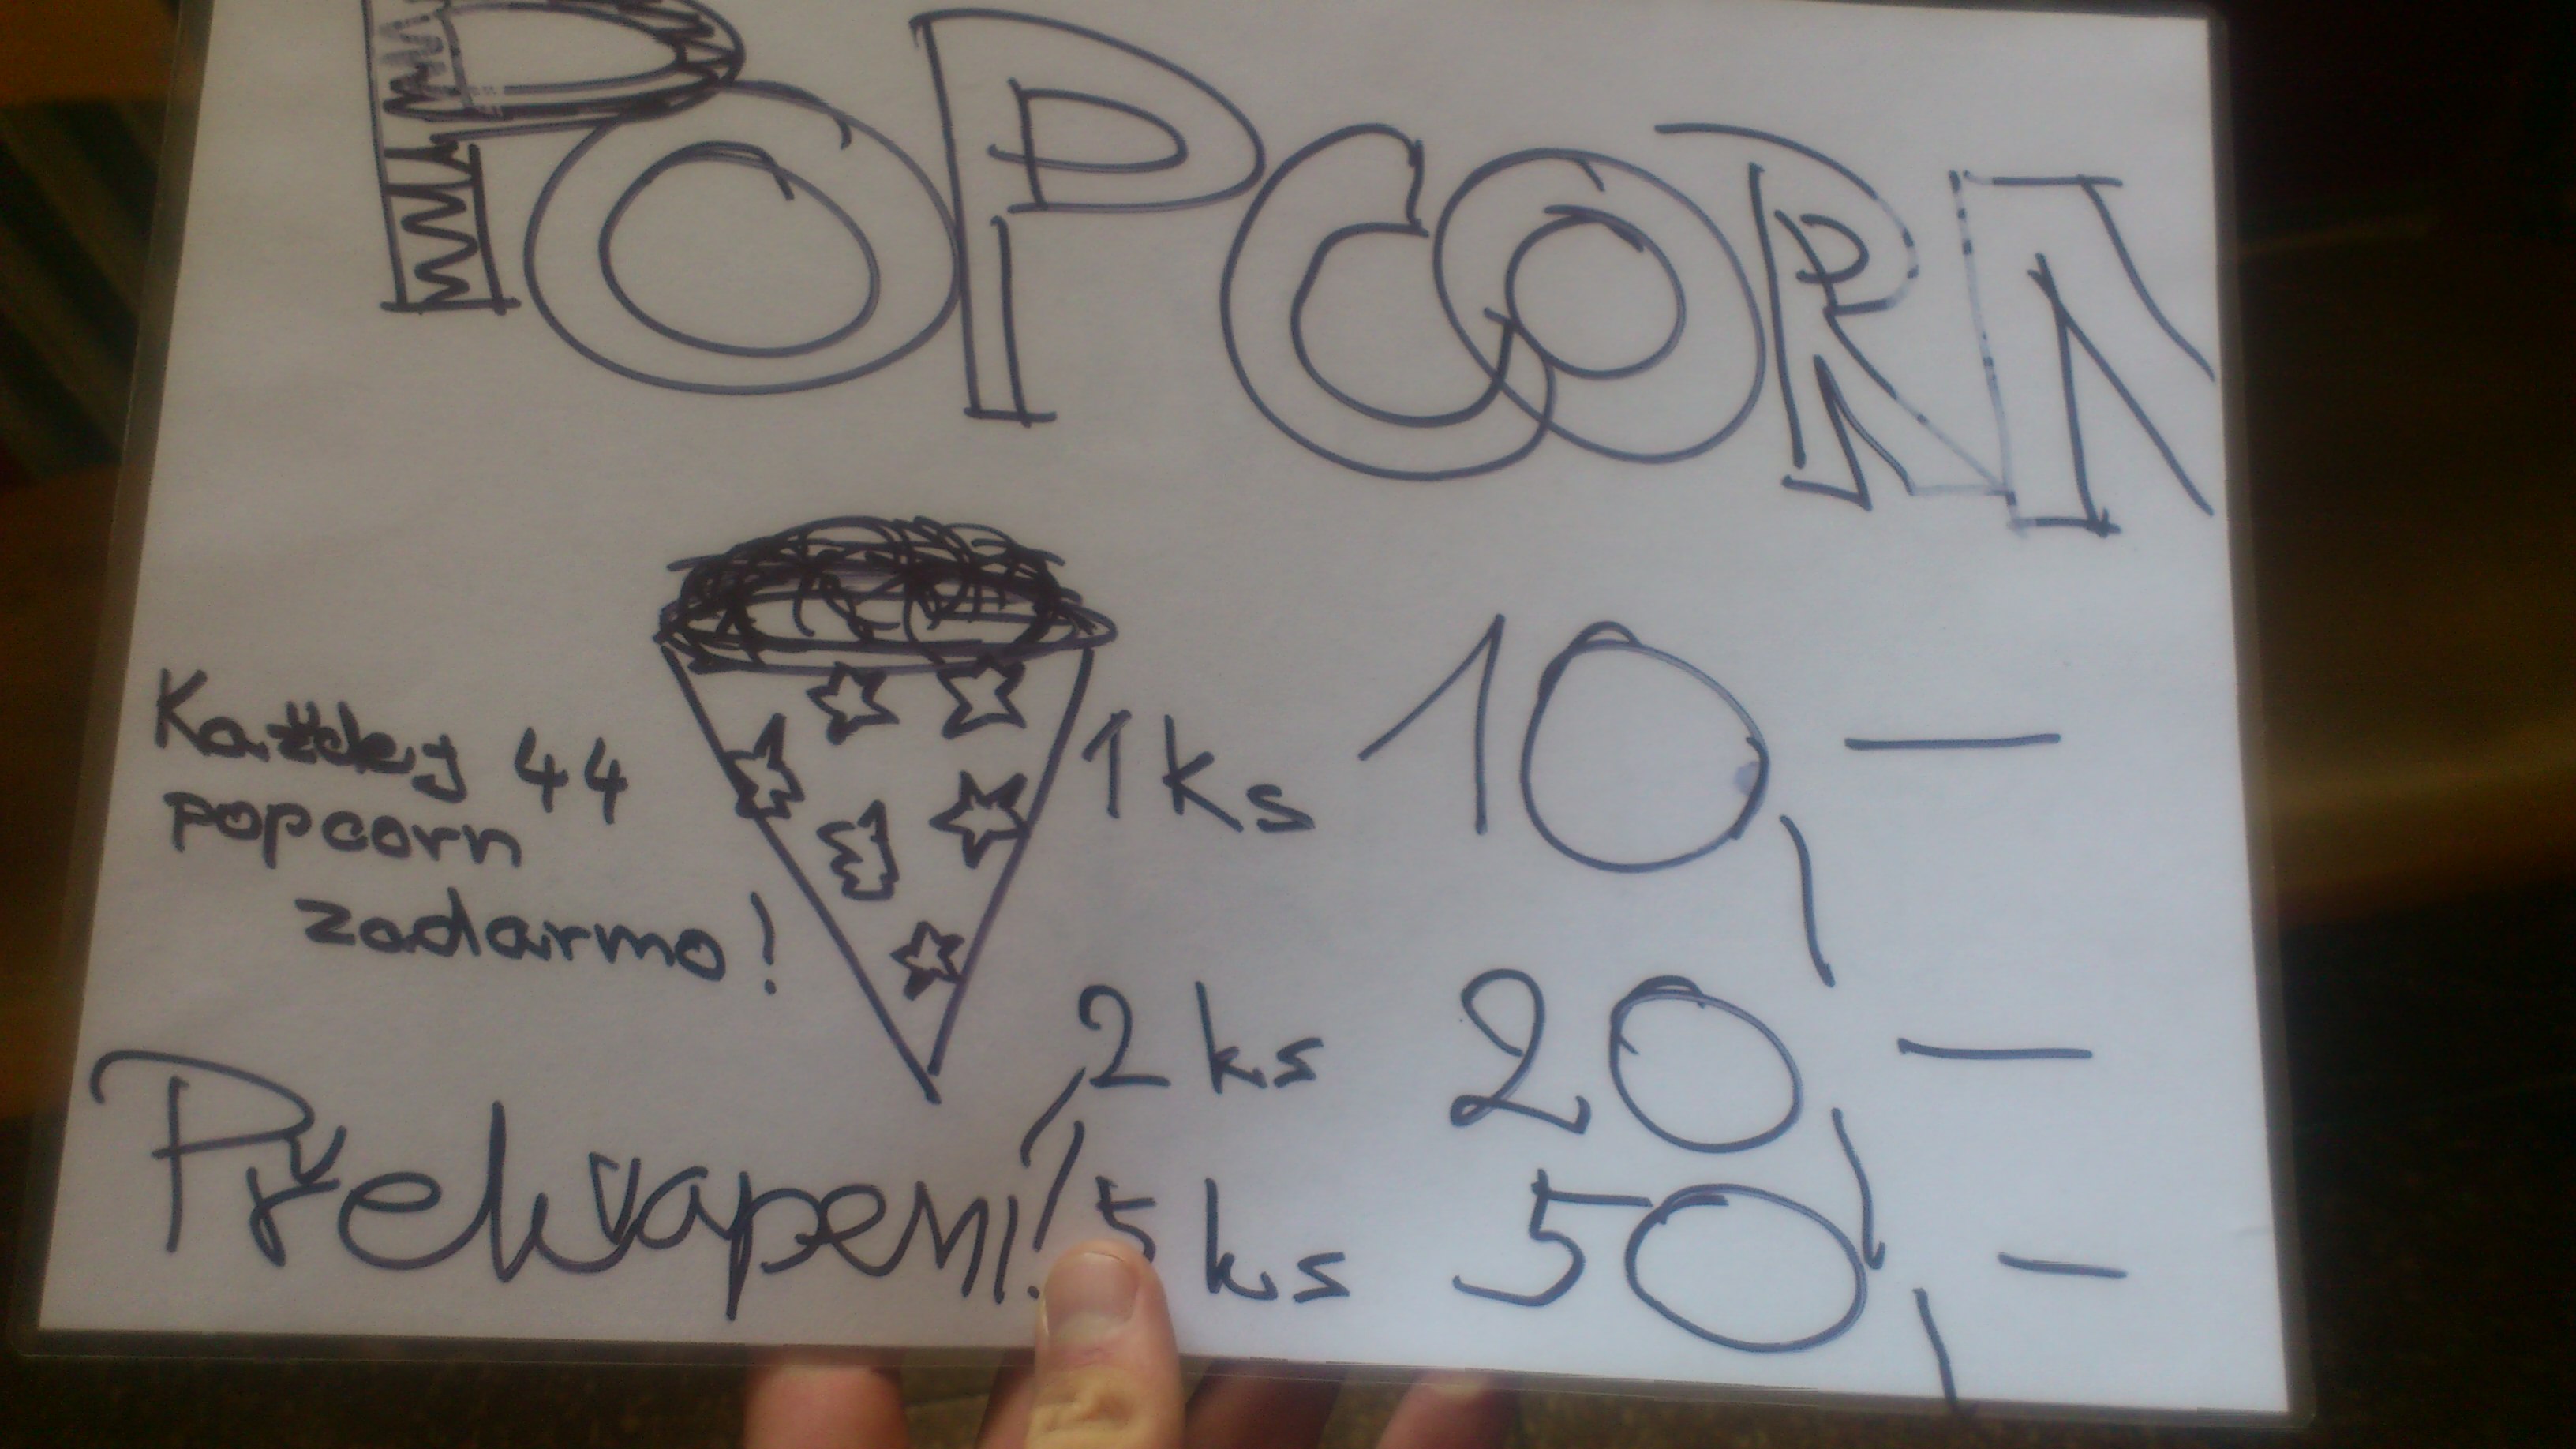 POPCORN
Každey 44
popcorn
zadarmo!
1 ks 10,-
2 ks 20,-
5 ks 50,-
Překvapení!